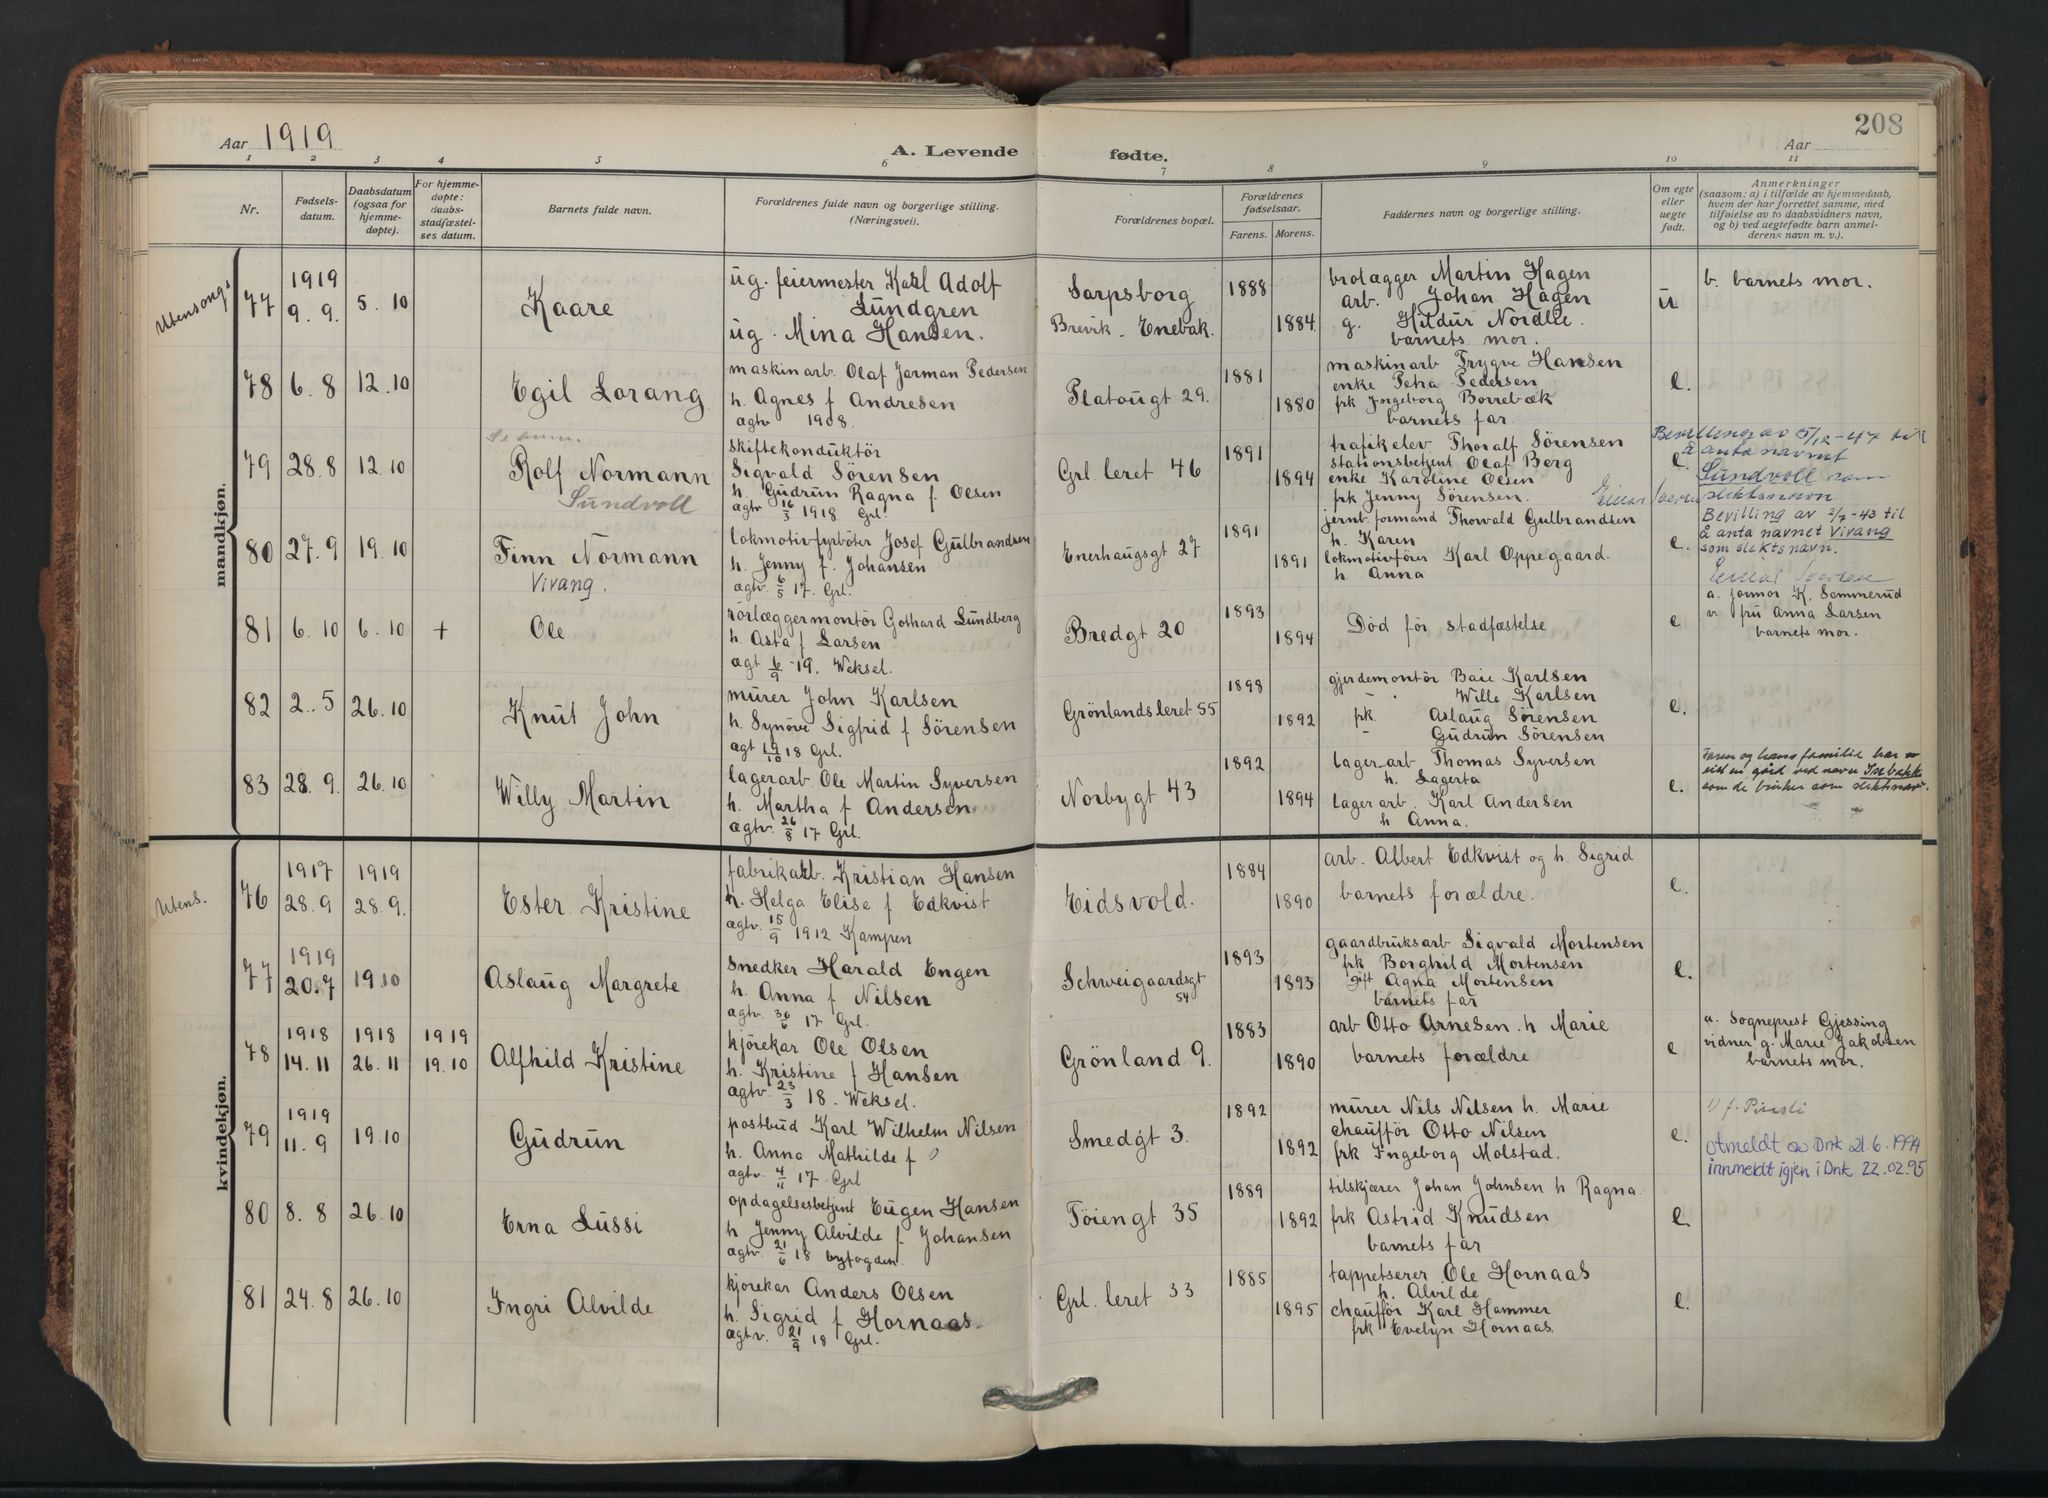 Aar 1919
A. Levende fødte.
208
Aar
1 2 3 4 5 6 7 8 9 10 11
Nr.
Fødsels-
datum.
Daabsdatum
(ogsaa for
hjemme-
døpte).
For hjemme-
døpte:
daabs-
stadfæstel-
ses datum.
Barnets fulde navn.
Forældrenes fulde navn og borgerlige stilling.
(Næringsvei).
Forældrenes bopæl.
Forældrenes
fødselsaar.
Farens. Morens.
Faddernes navn og borgerlige stilling.
Om egte
eller
uegte
født.
Anmerkninger
(saasom: a) i tilfælde av hjemmedaab,
hvem der har forrettet samme, med
tilføielse av to daabsvidners navn,
og b) ved uegtefødte barn anmel-
derens navn m. v.).
mandkjøn.
Utensongs
77
1919
9. 9.
5. 10
Kaare
ug. feiermester Karl Adolf
Lundgren
ug. Mina Hansen.
Sarpsborg
Brevik. Enebak.
1888
1884
brolægger Martin Hagen
arb. Johan Hagen
g. Hildur Nordlie.
barnets mor.
u
b. barnets mor.
78
6. 8
12. 10
Egil Lorang
maskinarb. Olaf Jarman Pedersen
h. Agnes f Andresen
agtv 1908.
Platougt 29.
1881
1880
maskinarb Trygve Hansen
enke Petra Pedersen
frk Ingeborg Borrebæk
barnets far.
e.
79
28. 8
12. 10
Rolf Normann
Sundvoll
skiftekonduktör
Sigvald Sörensen
h. Gudrun Ragna f Olsen
agtv 16/3 1918 Grl.
Grl. leret 46
1891
1894
trafikelev Thoralf Sörensen
stationsbetjent Olaf Berg
enke Karoline Olsen
frk Jenny Sörensen.
e.
Bevilling av 5/12-47 til
å anta navnet
Sundvoll som
slektsnavn
80
27. 9
19. 10
Finn Normann
Vivang.
lokmotivfyrböter Josef Gulbrandsen
h. Jenny f. Johansen
agtv 6/5 17. Grl.
Enerhaugsgt 27
1891
1891
jernb. formand Thorvald Gulbrandsen
h. Karen
lokmotivförer Karl Oppegaard.
h Anna
e.
Bevilling av 2/7-43 til
å anta navnet Vivang
som slektsnavn.
81
6. 10
6. 10
+
Ole
rörlæggermontör Gothard Lundberg
h. Asta f Larsen
agt 6/9 -19. Weksel.
Bredgt 20
1893
1894
Död för stadfæstelse
e
a. jormor K. Semmerud
v. fru Anna Larsen
barnets mor.
82
2. 5
26. 10
Knut John
murer John Karlsen
h. Synöve Sigfrid f Sörensen
agt 19/10 18 Grl.
Grönlandsleret 55
1898
1892
gjerdemontör Baie Karlsen
-"- Wille Karlsen
frk Aslaug Sörensen
- Gudrun Sörensen
e.
83
28. 9.
26. 10
Willy Martin
lagerarb Ole Martin Syversen
h. Martha f Andersen
agtv. 26/8 17 Grl.
Norbygt 43
1892
1894
lager-arb Thomas Syversen
h. Lagerta
lager arb. Karl Andersen
h Anna.
e.
Faren og hans familie har
eid en gård ved navn Isebakke
som de bruker som slektsnavn.
kvindekjøn.
Utens.
76
1917
28. 9
1919
28. 9.
Ester Kristine
fabrikarb. Kristian Hansen
h. Helga Elise f Edkvist
agtv. 15/9 1912 Kampen
Eidsvold.
1884
1890
arb. Albert Edkvist og h. Sigrid
barnets forældre.
e.
77
1919
20. 7
19. 10
Aslaug Margrete
Snedker Harald Engen
h. Anna f Nilsen
agtv. 30/6 17 Grl.
Schweigaardsgt
54
1893
1893
gaardbruksarb Sigvald Mortensen
frk Borghild Mortensen
gift Agna Mortensen
barnets far
e.
78
1918
14. 11
1918
26. 11
1919
19. 10
Alfhild Kristine
kjörekar Ole Olsen
h. Kristine f Hansen
agtv. 23/3 18. Weksel.
Grönland 9.
1883
1890
arb Otto Arnesen. h Marie
barnets forældre
e
a. Sogneprest Gjessing
vidner g. Marie Jakobsen
barnets mor.
79
1919
11. 9
19. 10
Gudrun
postbud Karl Wilhelm Nilsen
h. Anna Mathilde f
agtv. 4/11 17 Grl
Smedgt 3.
1892
1892
murer Nils Nilsen h. Marie
chaufför Otto Nilsen
frk Ingeborg Molstad.
e.
Utmeldt av Dnk 21. 6. 1994
innmeldt igjen i Dnk 22. 02. 95
80
8. 8
26. 10
Erna Lussi
opdagelsesbetjent Eugen Hansen
h Jenny Alvilde f Johansen
agtv. 21/6 18 byfogden.
Töiengt 35
1889
1892
tilskjærer Johan Johnsen h Ragna.
frk Astrid Knudsen
barnets far
e
81
24. 8
26. 10
Ingri Alvilde
kjörekar Anders Olsen
h. Sigrid f Hornaas.
agtv. 21/9 18 Grl.
Grl. leret 33
1885
1895
tappetserer Ole Hornaas
h. Alvilde
chaufför Karl Hammer
frk Evelyn Hornaas.
e.